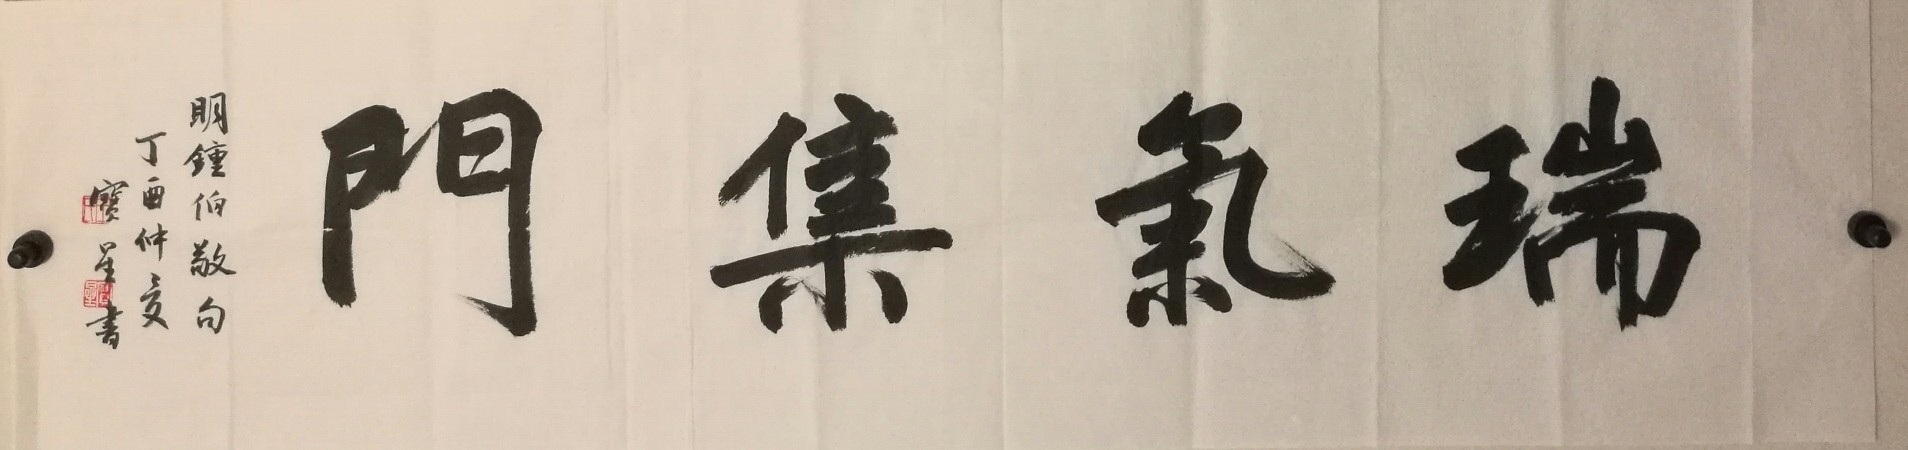 瑞氣集門
明鍾伯敬句
丁酉仲夏
寶星書